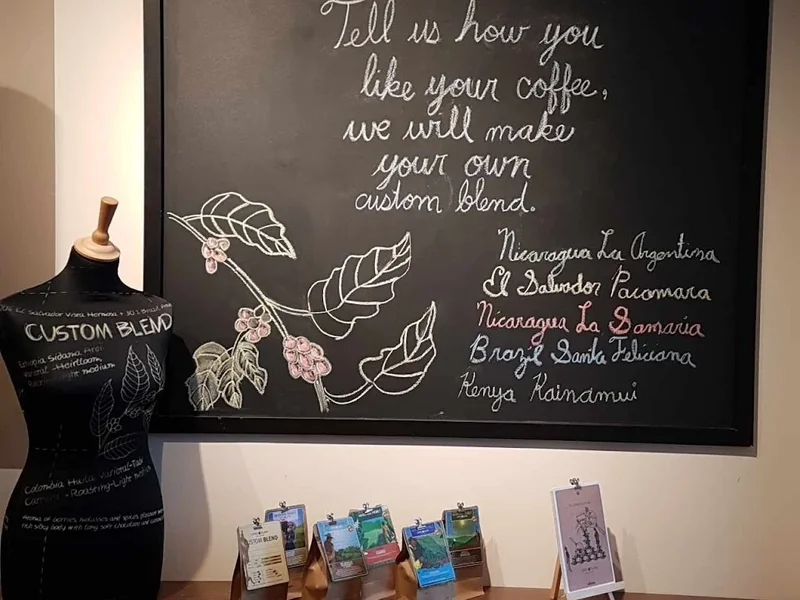 Tell us how you
like your coffee,
we will make
your own
custom blend.
Nicaragua La Argentina
El Salvador Pacamara
Nicaragua La Samaria
Brazil Santa Feliciana
Kenya Kainamui
El Salvador Vista Hermosa + 30%
CUSTOM BLEND
Ethiopia Sidama
Varietal - Heirloom
light medium
Colombia Huila Varietal-
- Roasting-Light medium
Aroma of berries, and spices
body with long
CUSTOM BLEND